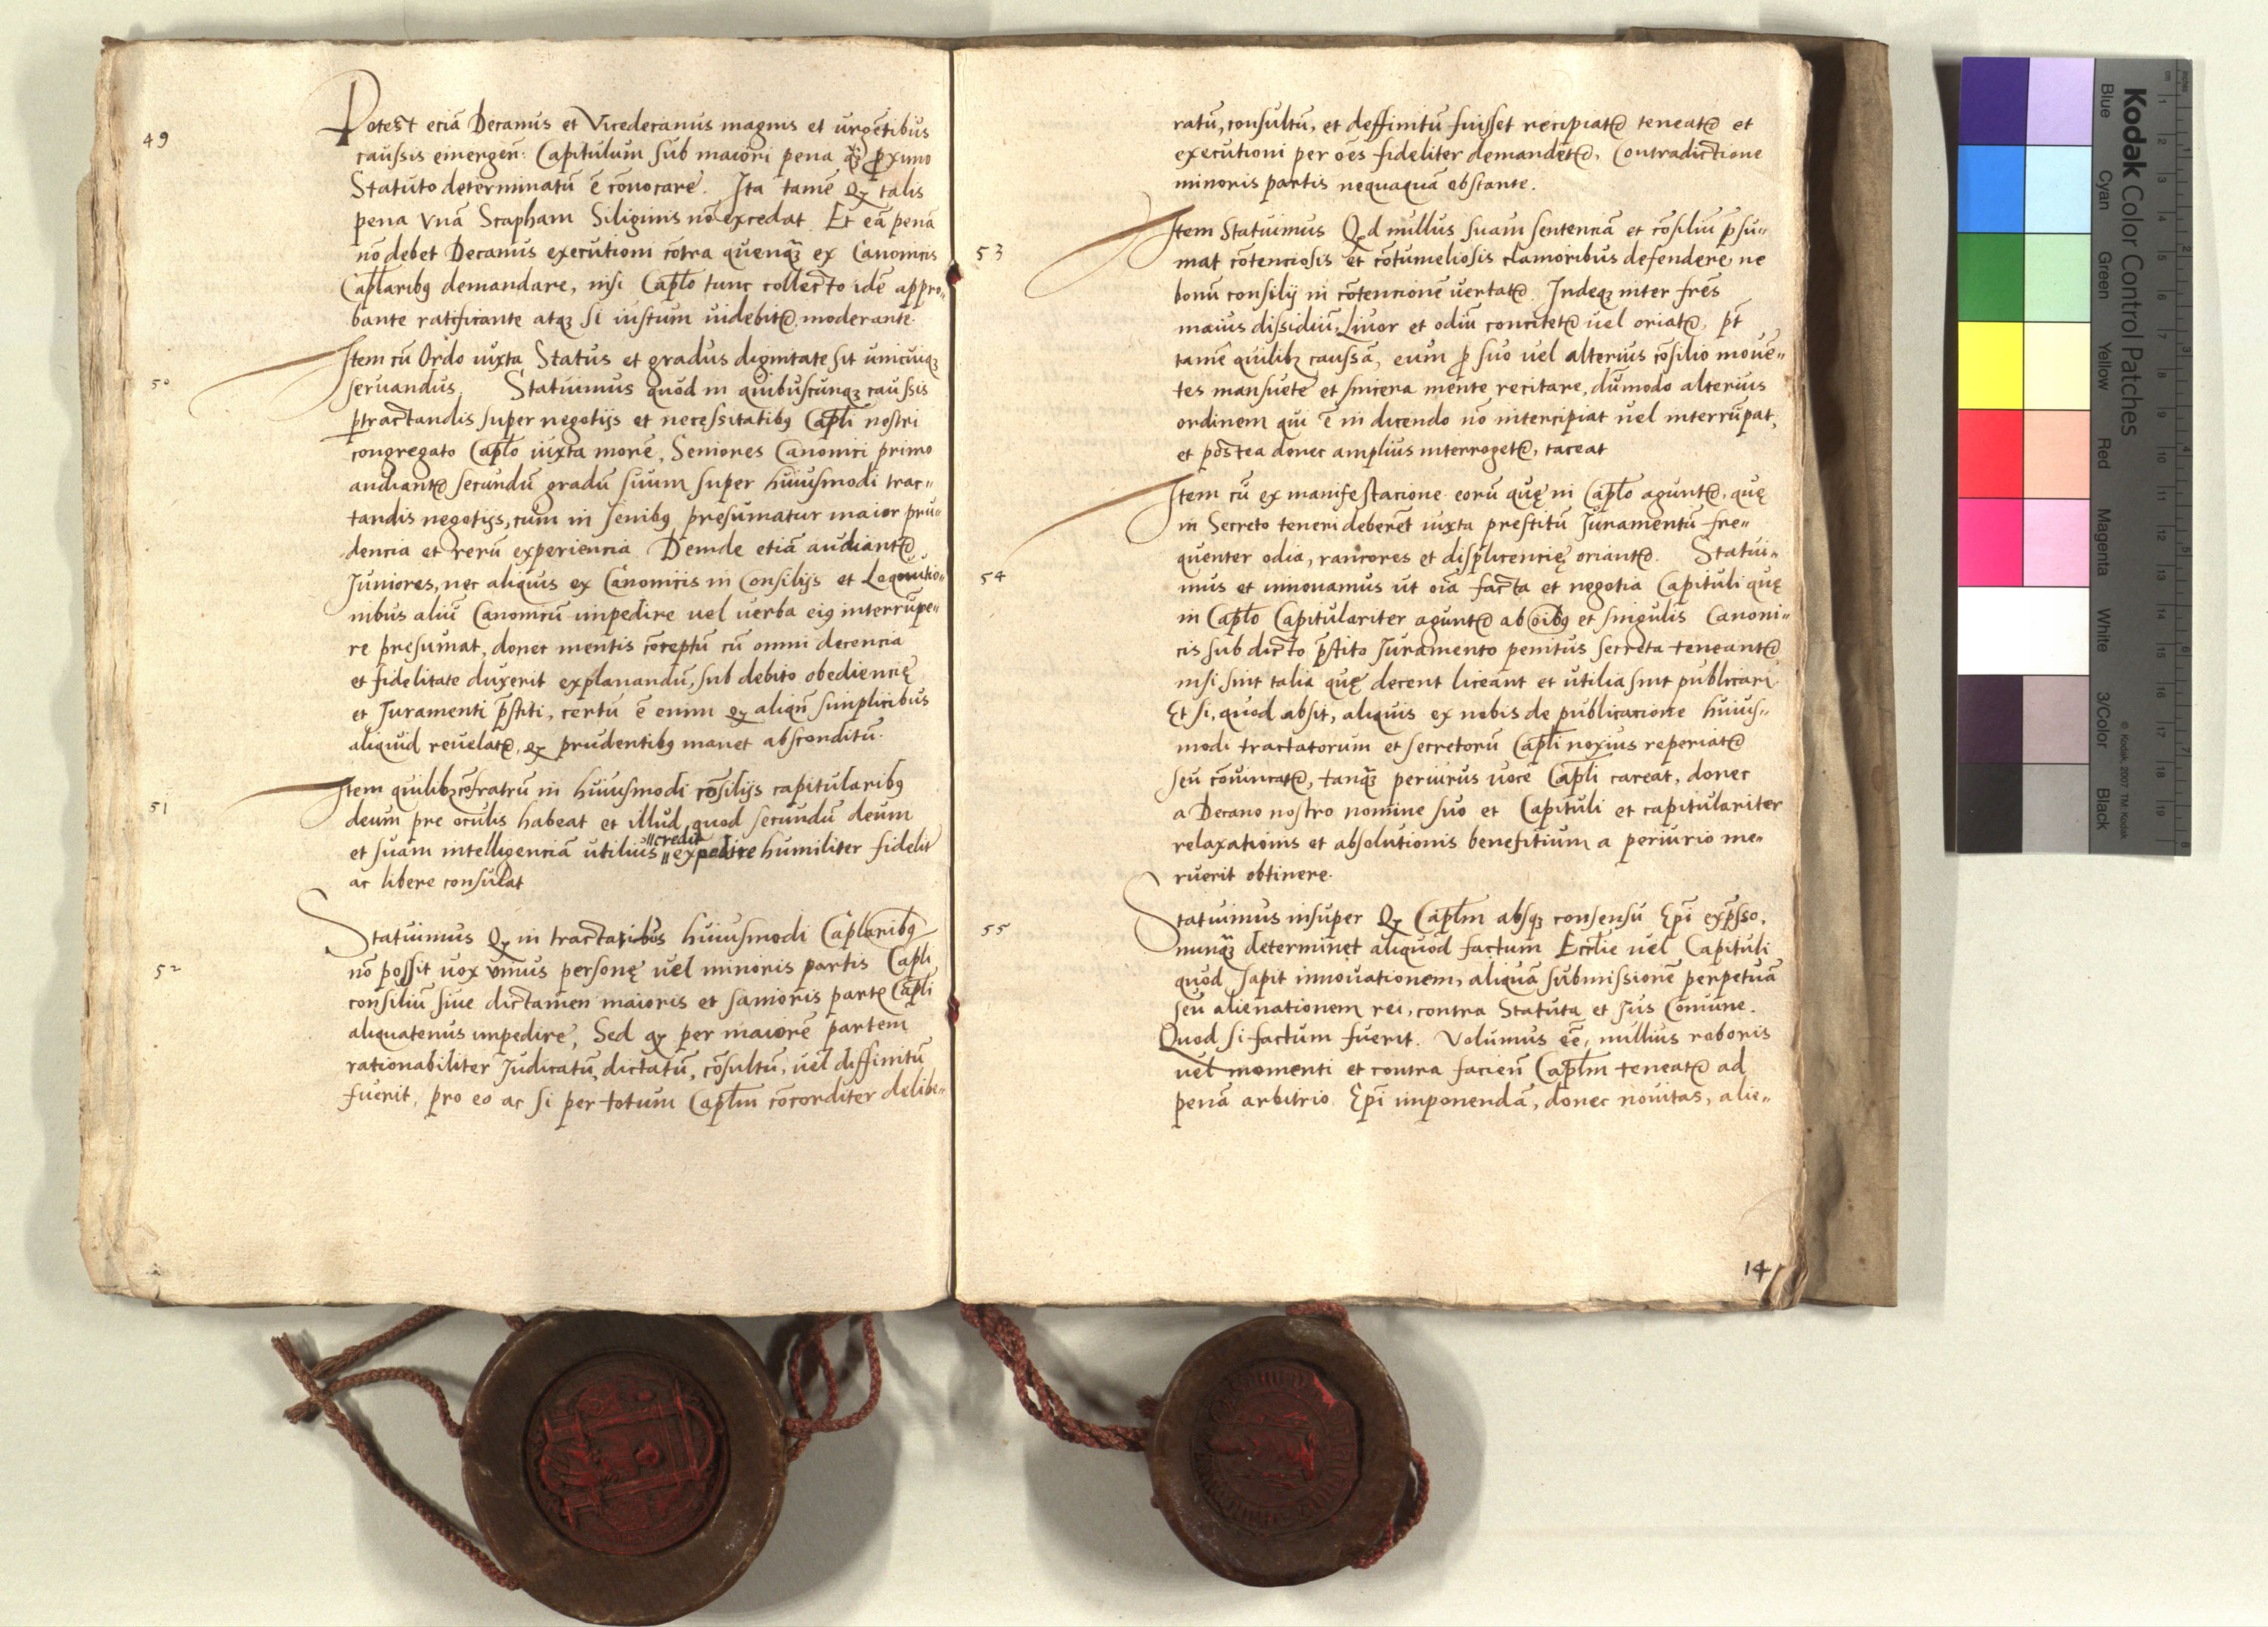 49
Potest eciā Decanus et Vicedecanus magnis et urgētibus
caussis emergeñ. Capitulum sub maiori pena q̃ꝫ ꝓximo
Statuto determinatū ē cōuocare. Ita tamē ꝙ talis
pena vnā Scapham Siliginis nō excedat. Et eā penā
nō debet Decanus executioni cōtra quenq̃ꝫ ex Canonicis
Caplaribꝰ demandare, nisi Caplo tunc collecto idē appro„
bante ratificante atqꝫ si iustum uidebit̃ moderante.
50
Item cū Ordo iuxta Status et gradus dignitatē sit unicuiqꝫ
seruandus. Statuimus quod in quibuscunqꝫ caussis
ꝑtractandis super negotijs et necęssitatibꝰ Capli nostri
congregato Caplo iuxta morē, Seniores Canonici primo
audiant̃ secundū gradū suum super huiusmodi trac„
tandis negotijs, cum in senibꝰ presumatur maior pru„
dencia et rerū experiencia. Deinde etiā audiant̃
Juniores, nec aliquis ex Canonicis in Consilijs et Loqutio„
nibus aliū Canonicū impedire uel uerba eiꝰ interrūpe„
re presumat, donec mentis cōceptū cū omni decencia
et fidelitate duxerit explanandū, sub debito obediencię
et Juramenti p̄stiti, certū ē enim ꝙ aliqñ simplicibus
aliquid reuelat̃, ꝙ prudentibꝰ manet absconditū.
51
Item quilibꝫ cōfratrū in huiusmodi cōsilijs capitularibꝰ
deum pre oculis habeat et illud quod secundū deum
et suam intelligenciā utilius „credit „expedire humiliter fidelit̃
ac libere consulat
52
Statuimus ꝙ in tractatibus huiusmodi Caplaribꝰ
nō possit uox vnius personę uel minoris partis Capli
consiliū siue dictamen maioris et sanioris part̃ Capli
aliquatenus impedire, Sed ꝙ per maiorē partem
rationabiliter Judicatū, dictatū, cōsultū, uel diffinitū
fuerit, pro eo ac si per totum Caplm cōcorditer delibe„
ratū, consultū, et deffinitū fuisset recipiat̃ teneat̃ et
executioni per oēs fideliter demandēt̃, Contradictione
minoris partis nequaquā obstante.
53
Item Statuimus Qd nullus suam sentenciā et cōsiliū p̄su„
mat cōtenciosis et cōtumeliosis clamoribus defendere, ne
bonū consilij in cōtencionē uertat̃. Indeqꝫ inter frēs
maius dissidiū, Liuor et odiū concitet̃ uel oriat̃, p̄t
tamē quilibꝫ caussā, eum ꝓ suo uel alterius cōsilio mouē„
tes mansuete et sincera mente recitare, dūmodo alterius
ordinem qui ē in dicendo nō intercipiat uel interrūpat,
et postea donec amplius interroget̃, taceat
54
Item cū ex manifestacione eorū quę in Caplo agunt̃, quę
in Secreto teneri deberēt iuxta prestitū Juramentū fre„
quenter odia, rancores et displicencię oriant̃. Statui„
mus et innouamus ut oīa facta et negotia Capituli quę
in Caplo Capitulariter agunt̃ ab oībꝰ et singulis Canoni„
cis sub dicto p̄stito Juramento penitus secreta teneant̃
nisi sint talia quę decent liceant et utilia sint publicari.
Et si, quod absit, aliquis ex nobis de publicacione huius„
modi tractatorum et secretorū Capli noxius reperiat̃
seu cōuincat̃, tanq̃ꝫ periurus uoce Capli careat, donec
a Decano nostro nomine suo et Capituli et capitulariter
relaxationis et absolutionis benefitium a periurio me„
ruerit obtinere.
55
Statuimus insuper ꝙ Caplm absqꝫ consensu Epī exp̄sso,
nunq̃ꝫ determinet aliquod factum Eccl̄ie uel Capituli
quod sapit innouationem, aliquā submissionē perpetuā
seu alienationem rei, contra Statuta et Jus Comūne.
Quod si factum fuerit. Volumus eē, nullius roboris
uel momenti et contra facieñ Caplm teneat̃ ad
penā arbitrio Epī imponendā, donec nouitas, alie„
14
Kodak Color Control Patches
Blue Cyan Green Yellow Red Magenta White 3/Color Black
© Kodak, 2007 TM: Kodak